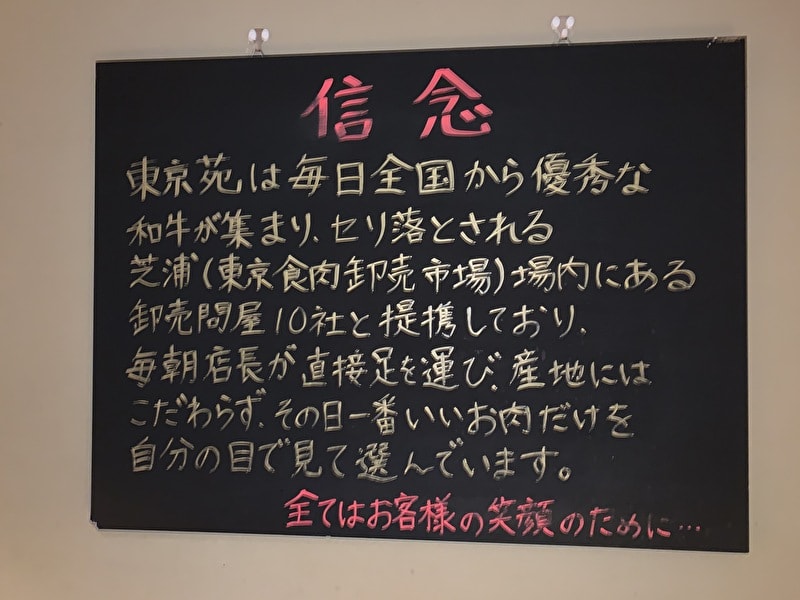 信念
東京苑は毎日全国から優秀な
和牛が集まり、セリ落とされる
芝浦(東京食肉卸売市場)場内にある
卸売問屋10社と提携しており、
毎朝店長が直接足を運び、産地には
こだわらず、その日一番いいお肉だけを
自分の目で見て選んでいます。
全てはお客様の笑顔のために…